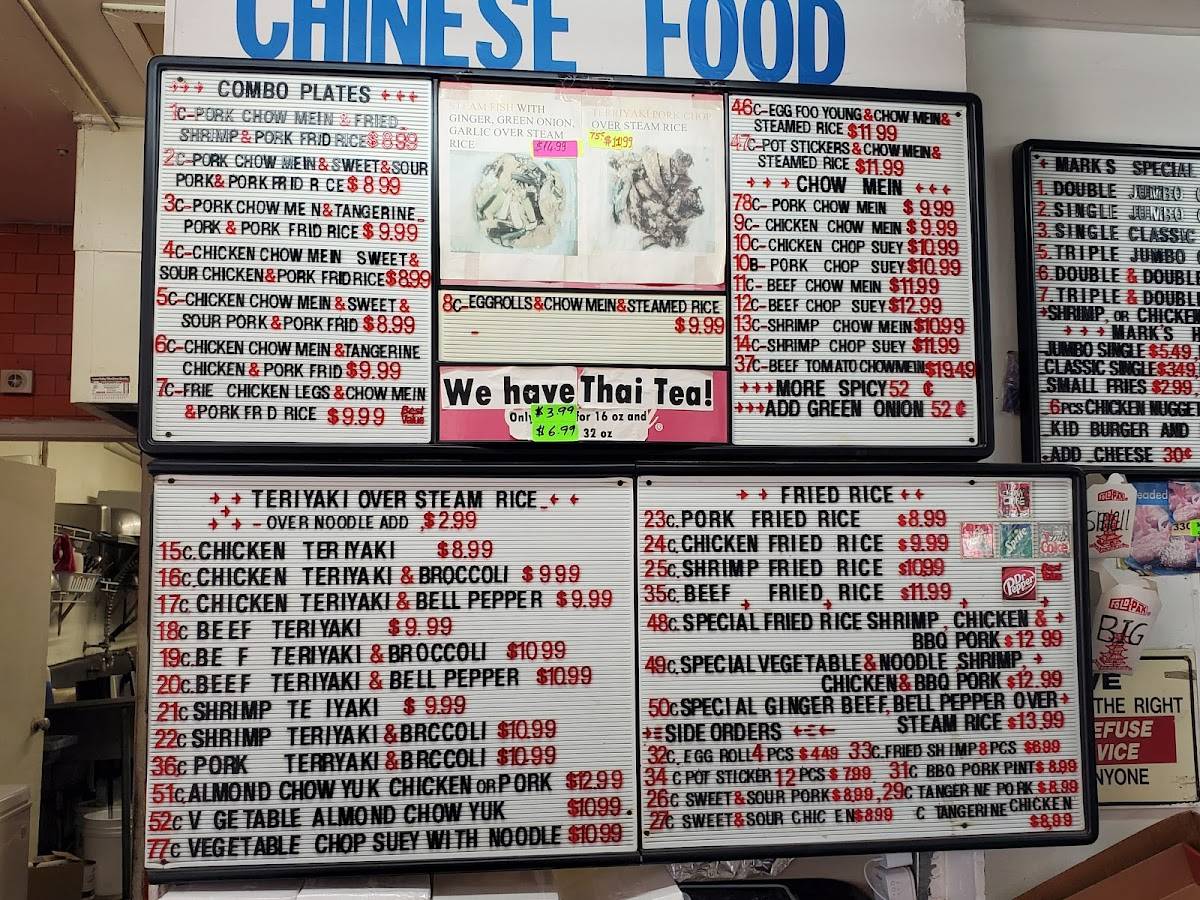 CHINESE FOOD
COMBO PLATES
1C-PORK CHOW MEIN & FRIED
SHRIMP & PORK FRID RICE $8.99
2C-PORK CHOW MEIN & SWEET & SOUR
PORK & PORK FRID R CE $8.99
3C-PORK CHOW ME N & TANGERINE
PORK & PORK FRID RICE $9.99
4C-CHICKEN CHOW MEIN SWEET &
SOUR CHICKEN & PORK FRIDRICE $8.99
5C-CHICKEN CHOW MEIN & SWEET &
SOUR PORK & PORK FRID $8.99
6C-CHICKEN CHOW MEIN & TANGERINE
CHICKEN & PORK FRID $9.99
7C-FRIE CHICKEN LEGS & CHOW MEIN
& PORK FR D RICE $9.99 Best Value
STEAM FISH WITH
GINGER, GREEN ONION,
GARLIC OVER STEAM
RICE
$14.99
TERRIYAKI PORK CHOP
OVER STEAM RICE
75c $11.99
8C-EGGROLLS & CHOW MEIN & STEAMED RICE
$9.99
We have Thai Tea!
Only $3.99 for 16 oz and
$6.99 32 oz
46C-EGG FOO YOUNG & CHOW MEIN &
STEAMED RICE $11.99
47C-POT STICKERS & CHOW MEIN &
STEAMED RICE $11.99
CHOW MEIN
78C- PORK CHOW MEIN $9.99
9C- CHICKEN CHOW MEIN $9.99
10C-CHICKEN CHOP SUEY $10.99
10B- PORK CHOP SUEY $10.99
11C- BEEF CHOW MEIN $11.99
12C-BEEF CHOP SUEY $12.99
13C-SHRIMP CHOW MEIN $10.99
14C-SHRIMP CHOP SUEY $11.99
37C-BEEF TOMATO CHOWMEIN $19.49
MORE SPICY 52 ¢
ADD GREEN ONION 52 ¢
MARK S SPECIAL
1. DOUBLE JUMBO
2. SINGLE JUMBO
3. SINGLE CLASSIC
5. TRIPLE JUMBO
6. DOUBLE & DOUBL
7. TRIPLE & DOUBL
+SHRIMP, OR CHICKEN
MARK'S
JUMBO SINGLE $5.49
CLASSIC SINGLE $349
SMALL FRIES $2.99
6 PCS CHICKEN NUGGE
KID BURGER AND
ADD CHEESE 30¢
TERIYAKI OVER STEAM RICE
- OVER NOODLE ADD $2.99
15C.CHICKEN TER IYAKI $8.99
16C.CHICKEN TERIYAKI & BROCCOLI $9 99
17C. CHICKEN TERIYAKI & BELL PEPPER $9.99
18C BEEF TERIYAKI $9.99
19C.BE F TERIYAKI & BROCCOLI $10 99
20C.BEEF TERIYAKI & BELL PEPPER $10.99
21C SHRIMP TE IYAKI $ 9.99
22C SHRIMP TERIYAKI & BRCCOLI $10.99
36C PORK TERRYAKI & BRCCOLI $10.99
51C.ALMOND CHOW YUK CHICKEN OR PORK $12.99
52C V GETABLE ALMOND CHOW YUK $10.99
77C VEGETABLE CHOP SUEY WITH NOODLE $10.99
FRIED RICE
23C.PORK FRIED RICE $8.99
24C.CHICKEN FRIED RICE $9.99
25C.SHRIMP FRIED RICE $10.99
35C. BEEF FRIED RICE $11.99
48C.SPECIAL FRIED RICE SHRIMP, CHICKEN &
BBQ PORK $12 99
49C.SPECIAL VEGETABLE & NOODLE SHRIMP,
CHICKEN & BBQ PORK $12.99
50C SPECIAL GINGER BEEF, BELL PEPPER OVER
STEAM RICE $13.99
SIDE ORDERS
32C. EGG ROLL 4 PCS $4.49 33C.FRIED SH IMP 8 PCS $6.99
34 C POT STICKER 12 PCS $ 7.99 31C BBQ PORK PINT $8.99
26C SWEET & SOUR PORK $8.99, 29C TANGER NE PO RK $8.99
27C SWEET & SOUR CHIC EN $8.99 C TANGERINE CHICKEN
$8.99
Sprite
Coke
Dr Pepper
Best Value
FOLD-PAK
SMAll
FOLD-PAK
BIG
eaded
THE RIGHT
EFUSE
VICE
NYONE